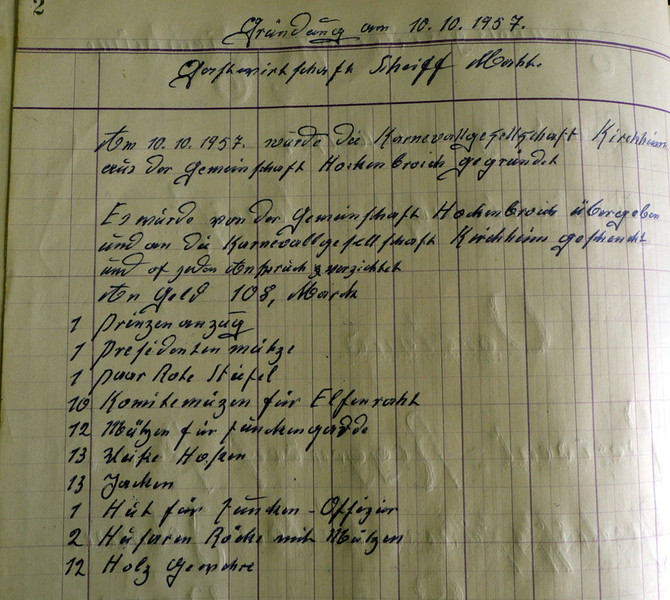 2
Gründung am 10.10.1957.
Gastwirtschaft Scheiff Math.
Am 10.10.1957. würde die Karnevallgesellschaft Kirchheim
aus der Gemeinschaft Hockenbroich gegründet
Es würde von der Gemeinschaft Hockenbroich übergeben
und an die Karnevallgesellschaft Kirchheim geschenckt
und of jeden Anspruch verzichtet
An Geld 108, March
1 Prinzenanzüg
1 Presidentenmütze
1 paar Rote Stiefel
10 Komitemüzen für Elferraht
12 Mützen für Funckengarde
13 Weiße Hosen
13 Jacken
1 Hüt für Funcken-Offizier
2 Hüsaren Röcke mit Mützen
12 Holz Gewehre